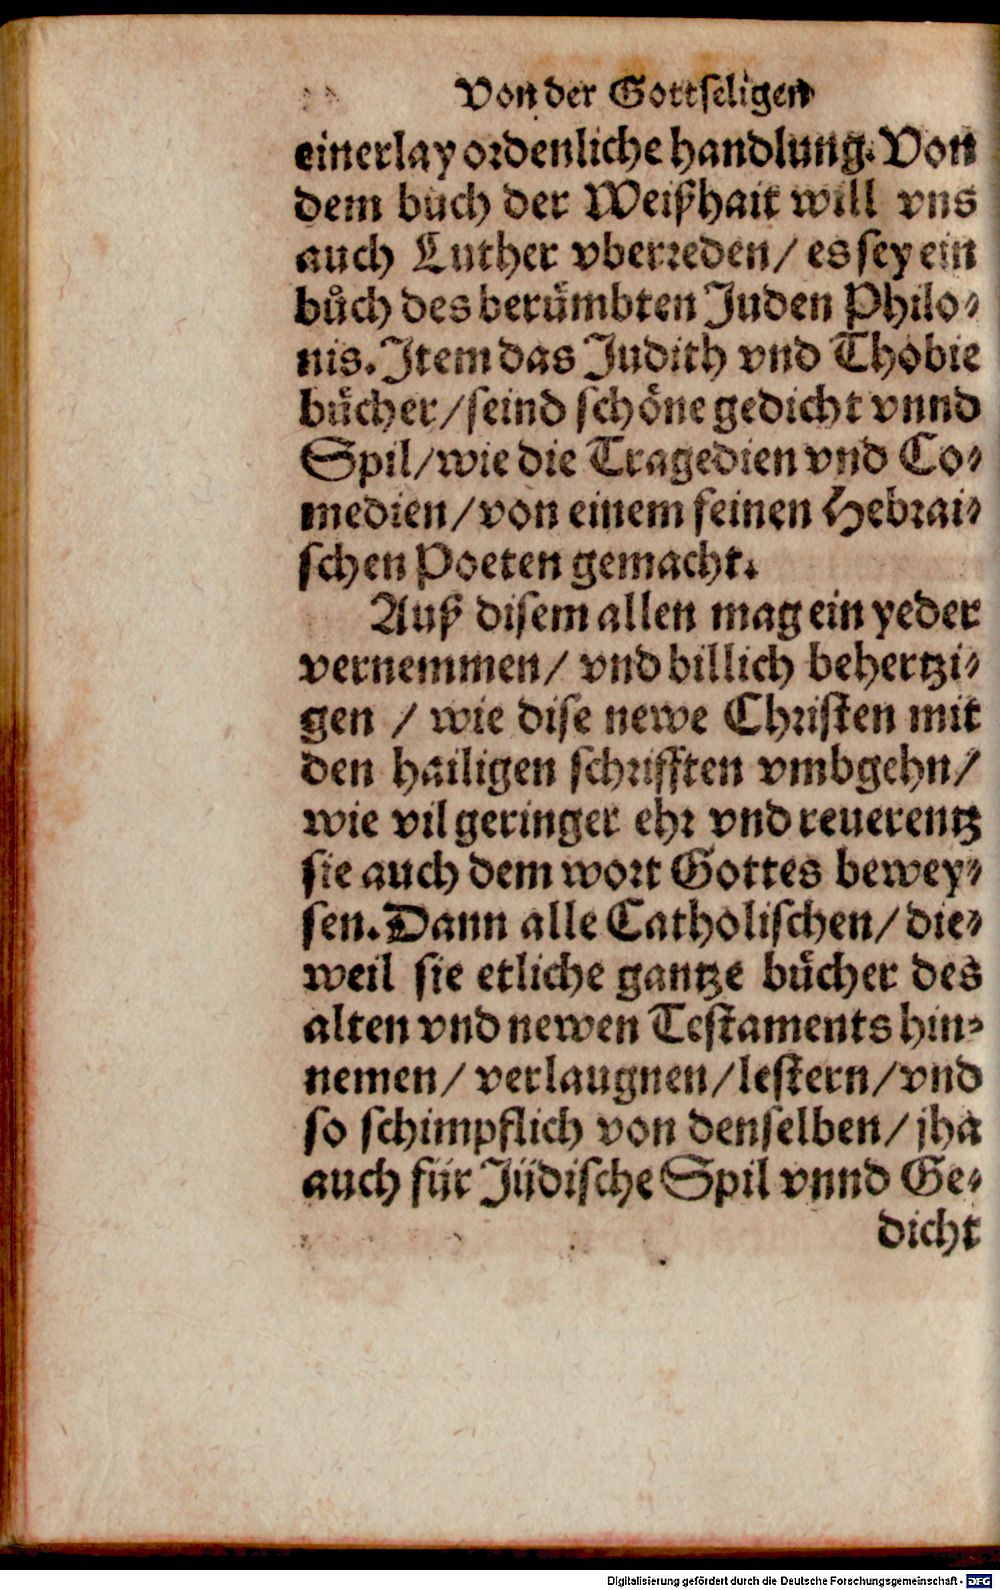 Von der Gottseligen
einerlay ordenliche handlung. Von
dem bůch der Weißhait will vns
auch Luther vberreden/ es sey ein
bůch des berümbten Juden Philo⸗
nis. Item das Judith vnd Thobie
bücher/ seind schöne gedicht vnnd
Spil/ wie die Tragedien vnd Co⸗
medien/ von einem feinen Hebrai⸗
schen Poeten gemacht.
Auß disem allen mag ein yeder
vernemmen/ vnd billich behertzi⸗
gen / wie dise newe Christen mit
den hailigen schrifften vmbgehn/
wie vil geringer ehr vnd reuerentz
sie auch dem wort Gottes bewey⸗
sen. Dann alle Catholischen/ die⸗
weil sie etliche gantze bücher des
alten vnd newen Testaments hin⸗
nemen/ verlaugnen/ lestern/ vnd
so schimpflich von denselben/ jha
auch für Jüdische Spil vnnd Ge⸗
dicht
Digitalisierung gefördert durch die Deutsche Forschungsgemeinschaft - DFG